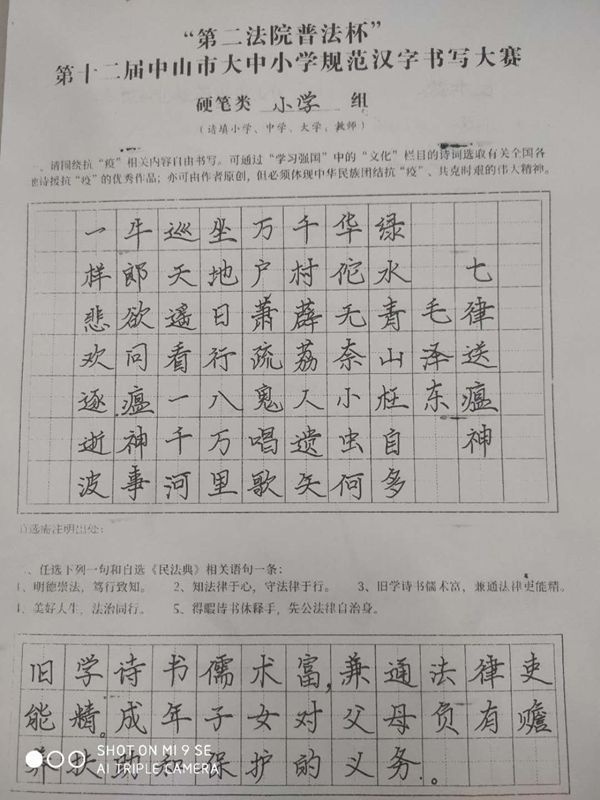 “第二法院普法杯”
第十二届中山市大中小学规范汉字书写大赛
硬笔类 小学 组
(请填小学、中学、大学、教师)
、请围绕抗“疫”相关内容自由书写。可通过“学习强国”中的“文化”栏目的诗词选取有关全国各
地诗援抗“疫”的优秀作品;亦可由作者原创,但必须体现中华民族团结抗“疫”、共克时艰的伟大精神。
七律送瘟神
毛泽东
绿水青山枉自多
华佗无奈小虫何
千村薜荔人遗矢
万户萧疏鬼唱歌
坐地日行八万里
巡天遥看一千河
牛郎欲问瘟神事
一样悲欢逐逝波
自选需注明出处:
、任选下列一句和自选《民法典》相关语句一条:
1、明德崇法,笃行致知。 2、知法律于心,守法律于行。 3、旧学诗书儒术富,兼通法律更能精。
4、美好人生,法治同行。 5、得暇诗书休释手,先公法律自治身。
旧学诗书儒术富,兼通法律吏
能精。成年子女对父母负有赡
养扶助和保护的义务。
SHOT ON MI 9 SE
AI TRIPLE CAMERA